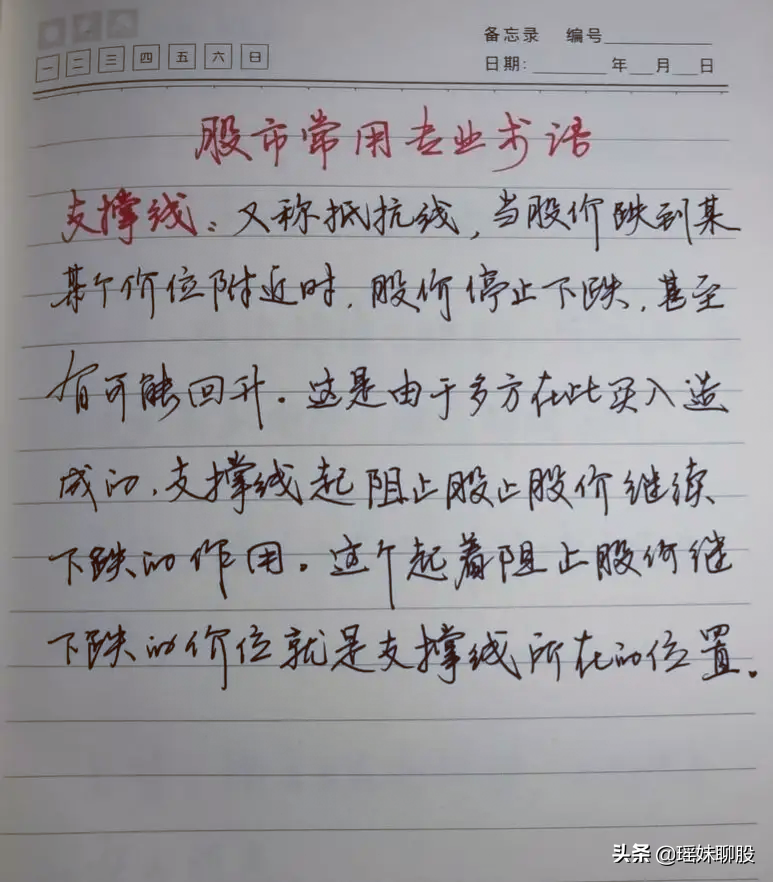 备忘录 编号
一 二 三 四 五 六 日
日期: 年 月 日
股市常用专业术语
支撑线：又称抵抗线，当股价跌到某
某个价位附近时，股价停止下跌，甚至
有可能回升。这是由于多方在此买入造
成的，支撑线起阻止股止股价继续
下跌的作用。这个起着阻止股价继
下跌的价位就是支撑线所在的位置。
头条 @瑶妹聊股